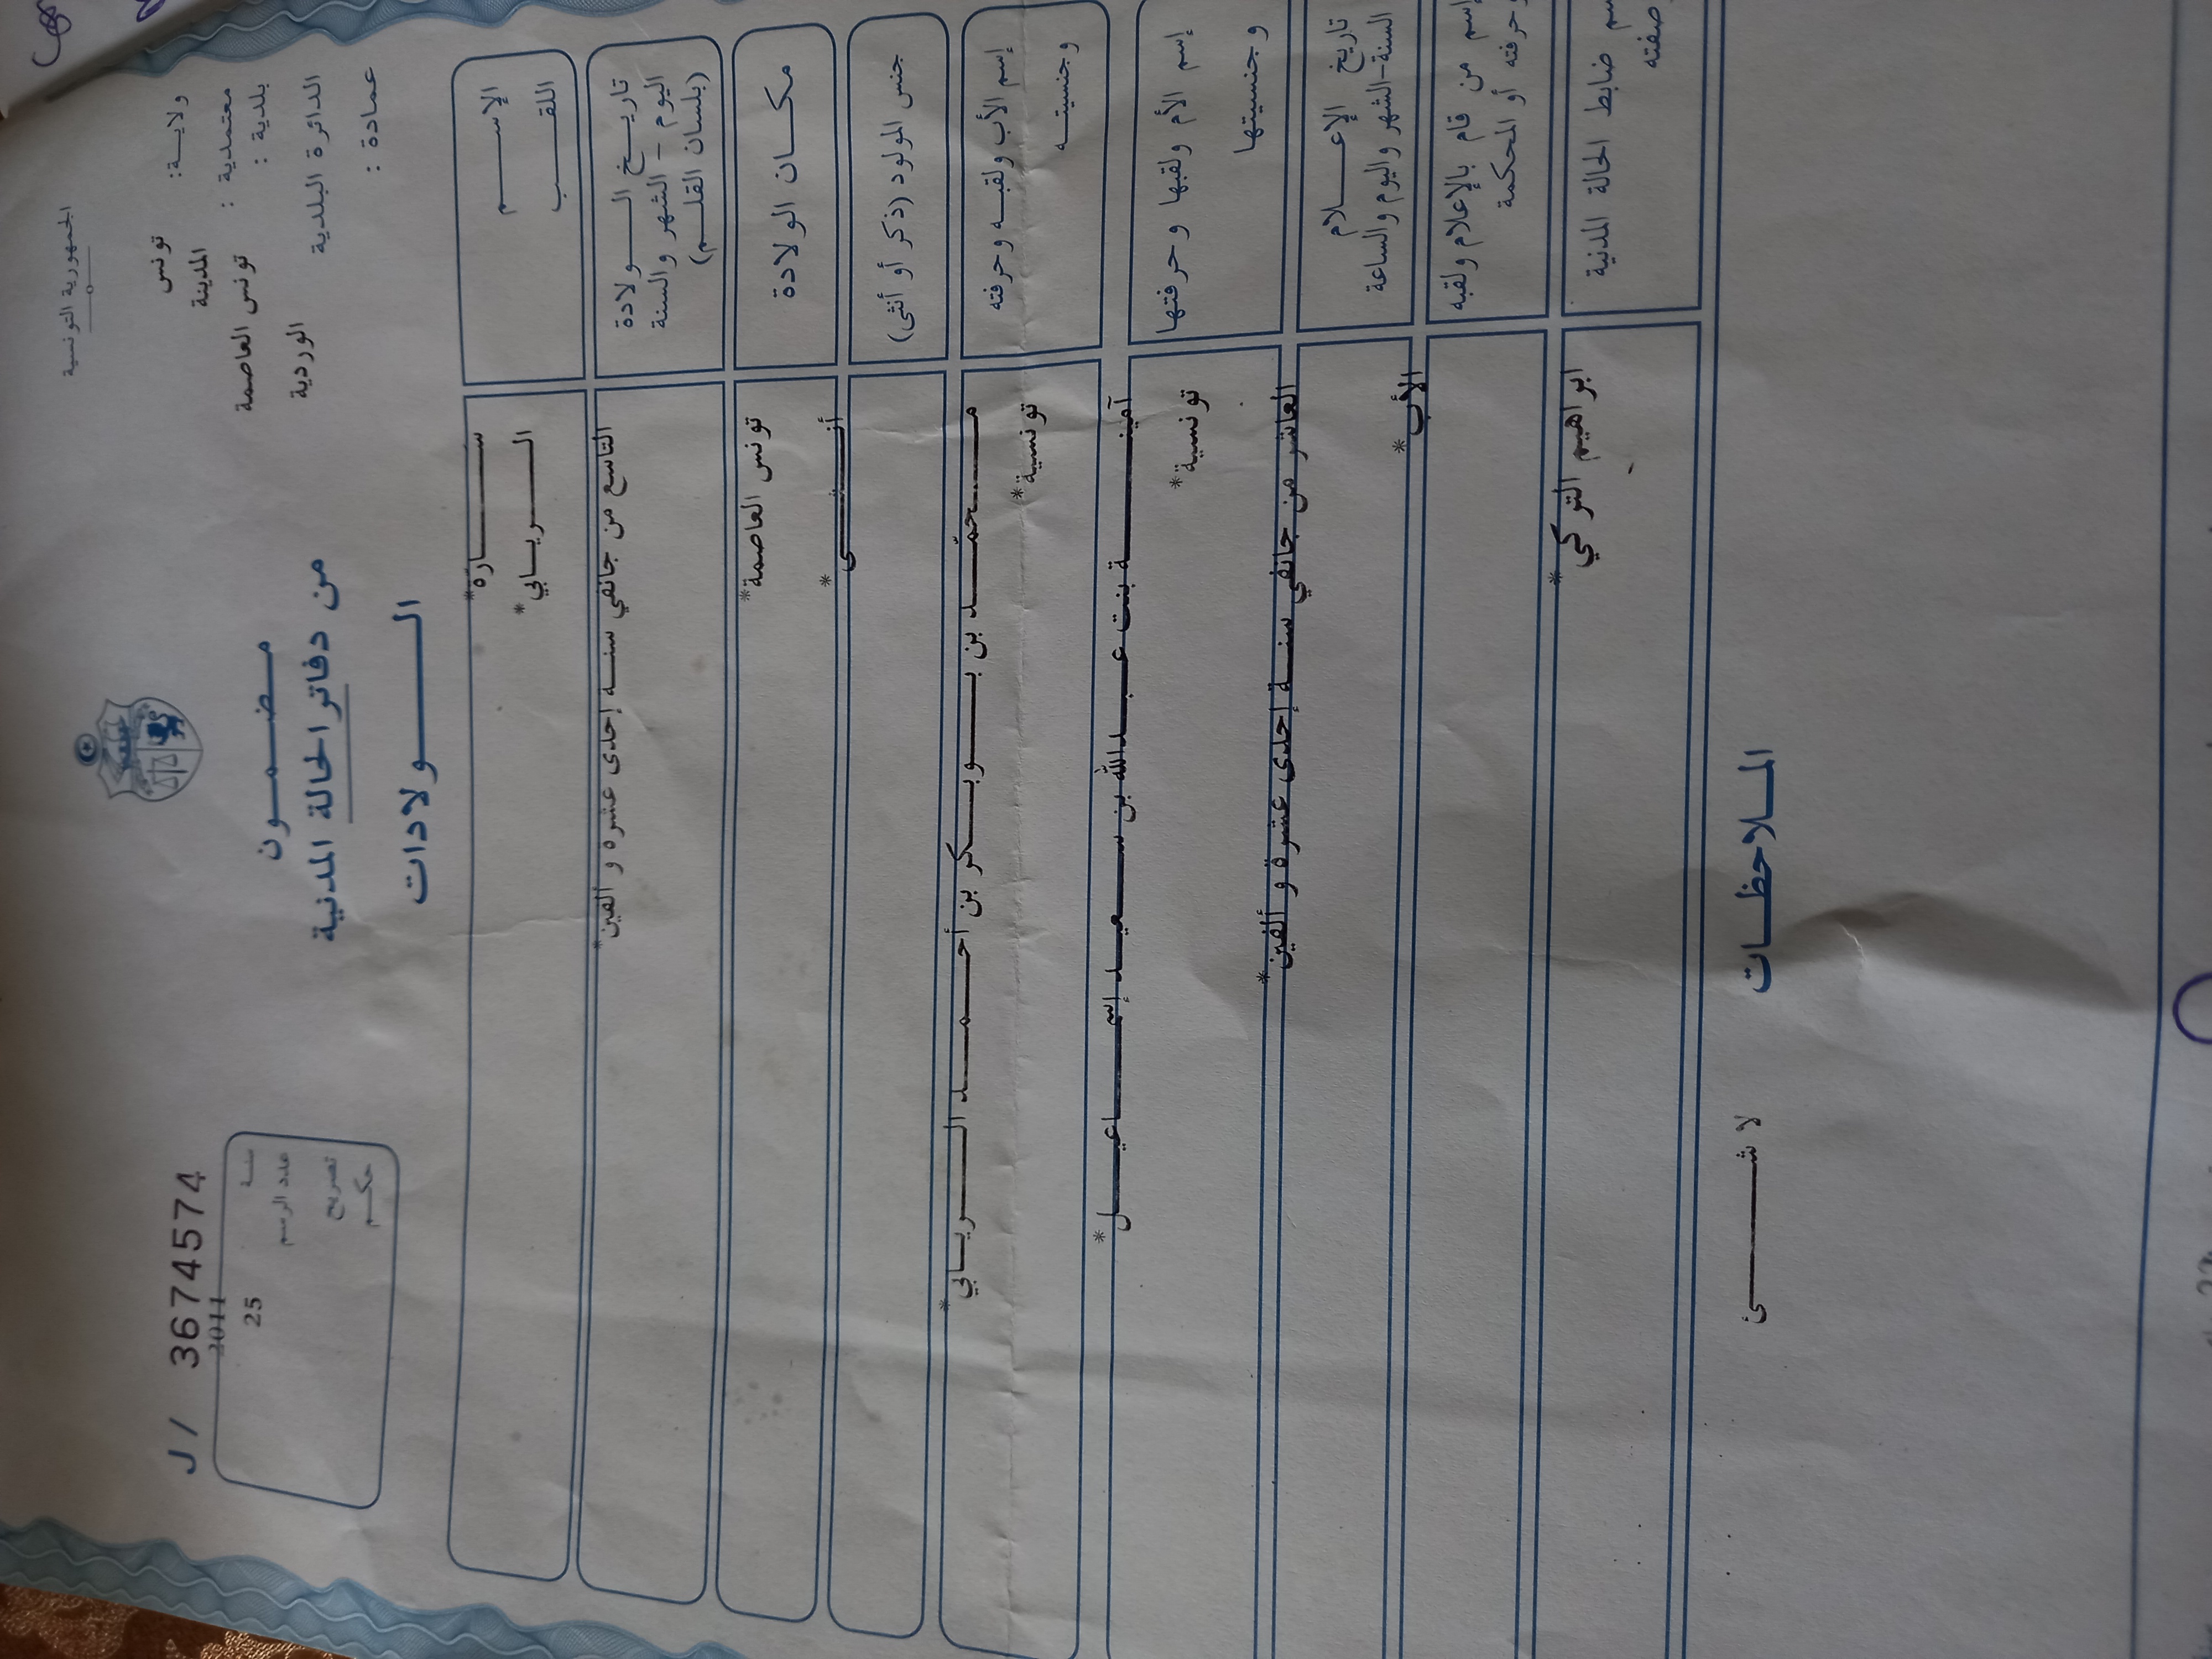 الجمهورية التونسية
ولاية: تونس
معتمدية : المدينة
بلدية : تونس العاصمة
الدائرة البلدية الوردية
عمادة :
J/ 3674574
سنة 2011
عدد الرسم 25
تصريح
حكم
مضمون
من دفاتر الحالة المدنية
الولادات
الإسم سارة*
اللقب الريابي*
تاريخ الولادة
اليوم - الشهر والسنة
(بلسان القلم)
التاسع من جانفي سنة إحدى عشرة و ألفين*
مكان الولادة تونس العاصمة*
جنس المولود (ذكر أو أنثى) أنثى*
إسم الأب ولقبه وحرفته محمّد بن بوبكر بن أحمد الريابي*
وجنسيته تونسية*
إسم الأم ولقبها وحرفتها آمينة بنت عبدالله بن سعيد إسماعيل*
وجنسيتها تونسية*
تاريخ الإعلام
السنة-الشهر واليوم والساعة
العاشر من جانفي سنة إحدى عشرة و ألفين*
إسم من قام بالإعلام ولقبه
وحرفته أو المحكمة
الأب*
ضابط الحالة المدنية ابراهيم التركي*
صفته
الملاحظات
لا شئ